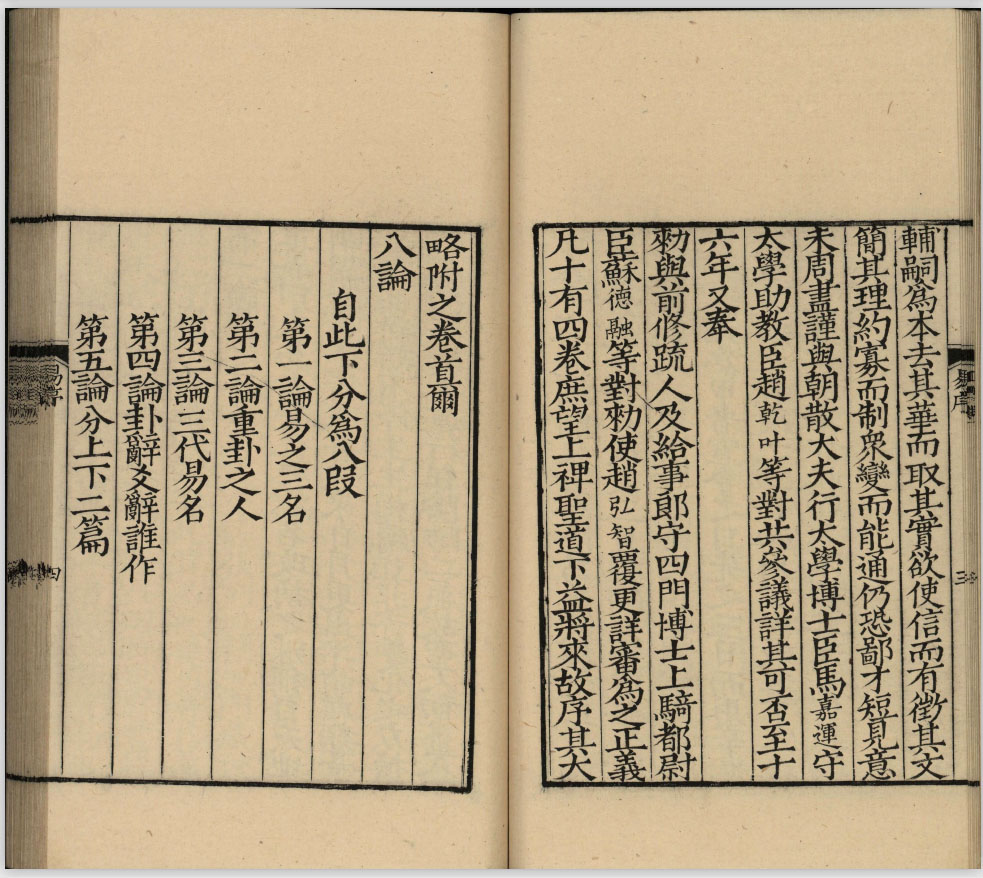 輔嗣爲本去其華而取其實欲使信而有徵其文
簡其理約寡而制衆變而能通仍恐鄙才短見意
未周盡謹與朝散大夫行太學博士臣馬嘉運守
太學助教臣趙乾叶等對共參議詳其可否至十
六年又奉
勑與前修疏人及給事郎守四門博士上騎都尉
臣蘇德融等對勑使趙弘智覆更詳審爲之正義
凡十有四卷庶望上裨聖道下益將來故序其大
略附之卷首爾
八論
自此下分爲八段
第一論易之三名
第二論重卦之人
第三論三代易名
第四論卦辭爻辭誰作
第五論分上下二篇